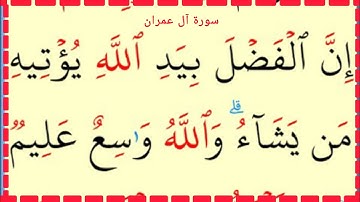 سورة آل عمران
إِنَّ ٱلۡفَضۡلَ بِيَدِ ٱللَّهِ يُؤۡتِيهِ
مَن يَشَآءُۗ وَٱللَّهُ وَٰسِعٌ عَلِيمٞ